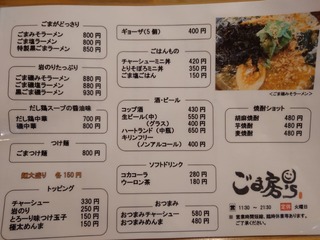 ごまがどっさり
ごまみそラーメン 800円
ごま塩ラーメン 800円
特製黒ごまラーメン 850円
岩のりたっぷり
ごま磯みそラーメン 880円
ごま磯塩ラーメン 880円
黒磯ごまラーメン 930円
だし鶏スープの醤油味
だし鶏中華 700円
磯中華 800円
つけ麺
ごまつけ麺 800円
麺大盛り 各150円
トッピング
チャーシュー 330円
岩のり 250円
とろーり味つけ玉子 150円
極太めんま 150円
ギョーザ(5個) 400円
ごはんもの
チャーシューミニ丼 420円
とりそぼろミニ丼 340円
ごま塩ごはん 150円
酒・ビール
コップ酒 450円
生ビール(中) 550円
(グラス) 400円
ハートランド(中瓶) 650円
キリンフリー
(ノンアルコール) 400円
ソフトドリンク
コカコーラ 200円
ウーロン茶 180円
おつまみ
おつまみチャーシュー 580円
おつまみめんま 480円
焼酎ショット
胡麻焼酎 480円
芋焼酎 480円
麦焼酎 480円
ごま房's
営 11:30 ~ 21:30 定休 火曜日